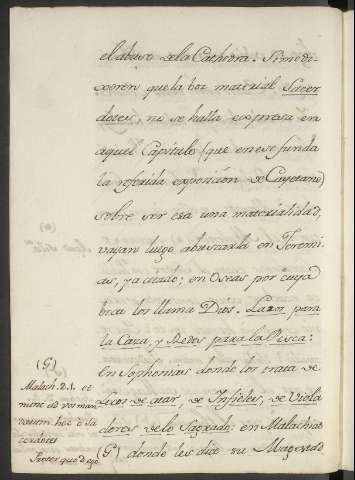 el abuso de la Cathedra. Si me di-
xeren que la boz material Sacer
dotes, no se halla expresa en
aquel Capitulo (que en ese funda
la referida exposición de Cayetano)
sobre ser esa una materialidad,
vayan luego a buscarla en Jeremi-
as, ya citado; en Oseas por cuya
boca los llama Dios. Lazos para
la Caza, y Redes para la Pesca:
en Sophonias donde los trata de
de Infieles, de Viola
dores de lo Sagrado: en Malachias
(G) donde les dice su Magestad
(G)
Malach. 2. 1. et
nunc ad vos man
datum hoc o Sa
cerdotes